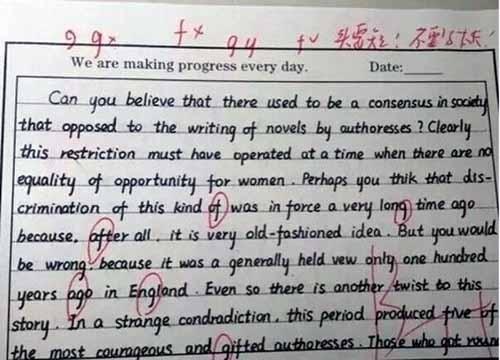 g g× f× g y f✓ 头要短！不要写太长！
We are making progress every day. Date:
Can you believe that there used to be a consensus in society
that opposed to the writing of novels by authoresses? Clearly
this restriction must have operated at a time when there are no
equality of opportunity for women. Perhaps you thik that dis-
crimination of this kind of was in force a very long time ago
because, after all, it is very old-fashioned idea. But you would
be wrong: because it was a generally held vew only one hundred
years ago in England. Even so there is another twist to this
story. In a strange condradiction, this period produced five of
the most courageous and gifted authoresses. Those who got